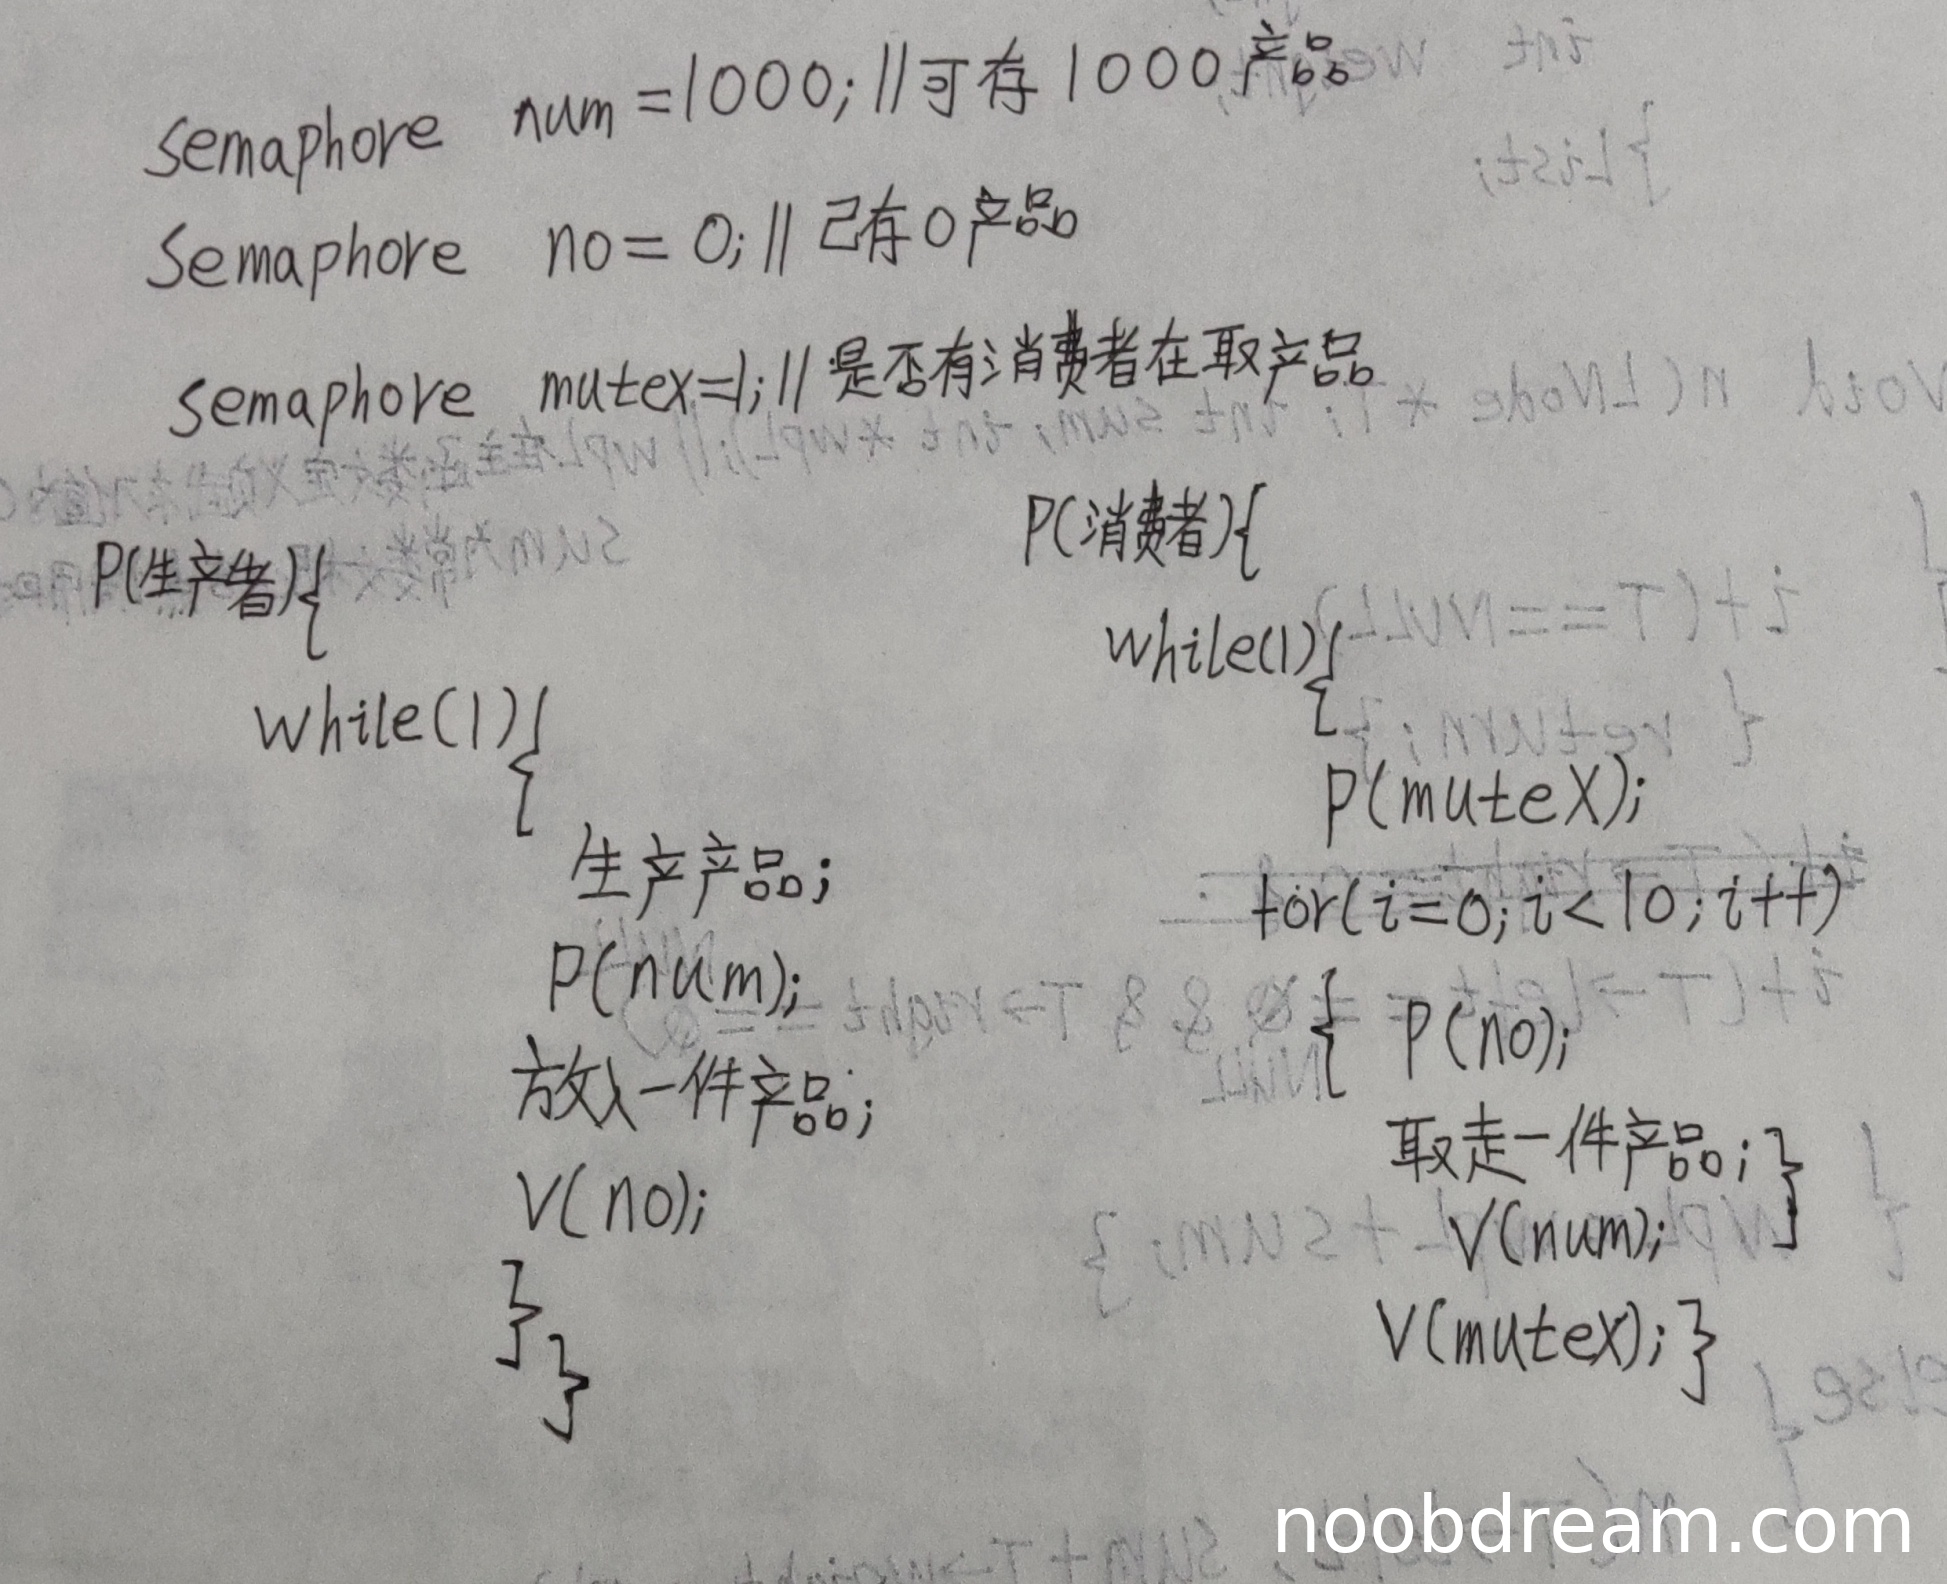 semaphore num=1000; //可存1000产品
Semaphore no=0; //已存0产品
semaphore mutex=1; //是否有消费者在取产品
P(生产者){
while(1){
生产产品;
P(num);
放入一件产品;
V(no);
}
}
P(消费者){
while(1){
P(mutex);
for(i=0;i<10;i++)
{ P(no);
取走一件产品;}
V(num); }
V(mutex); }
noobdream.com